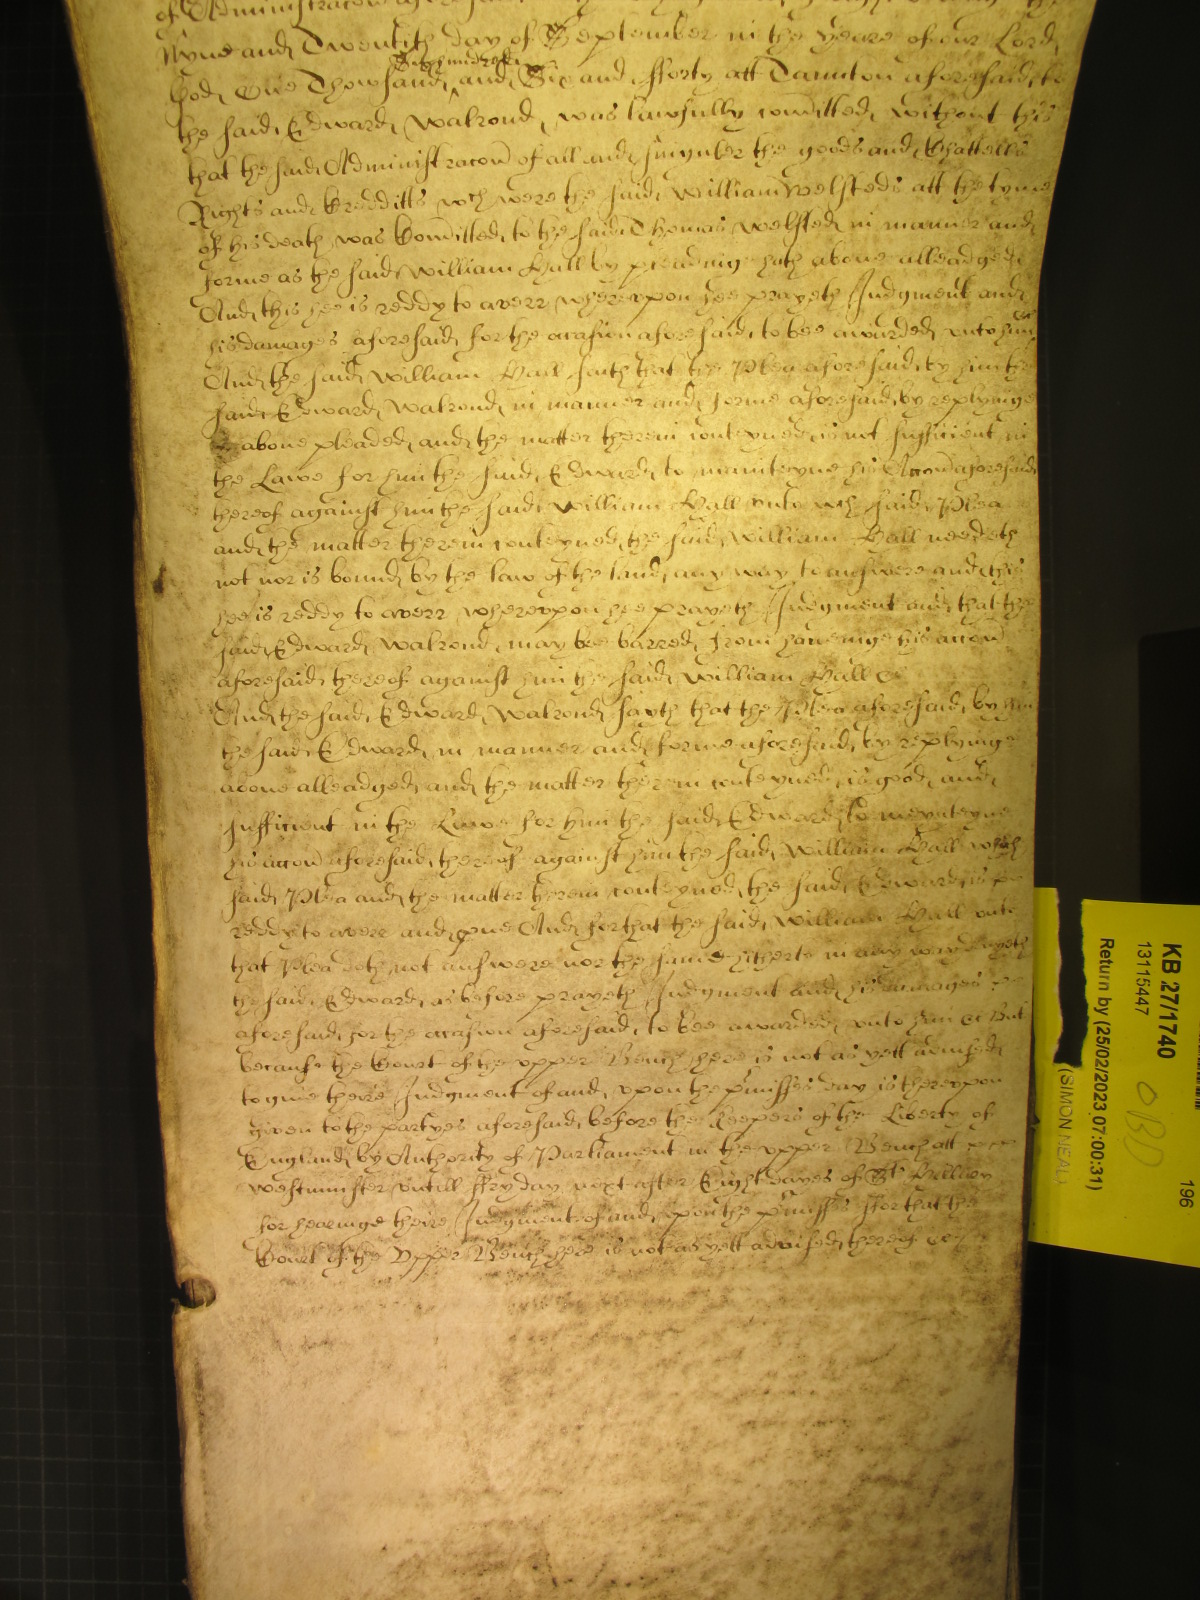 of Administracon
Nyne and Twentith day of September in the yeare of our Lord
God One Thowsand Six hundred and Six and fforty att Taunton aforesaid, to
the said Edward Walrond, was lawfully comitted, without this
that the said Administracon of all and singuler the goods and Chattells
Rights and Credditts wch were the said William Welsteds att the tyme
of his death was Comitted, to the said Thomas Welsted in manner and
forme as the said William Hall by pleadinge hath above alleadged
And this hee is reddy to averr wherevpon hee prayeth Judgment and
his damages aforesaid for the occasion aforesaid, to bee awarded vnto him
And the said William Hall saith that the Plea aforesaid, by him the
said Edward Walrond in manner and forme aforesaid, by replyinge
above pleaded, and the matter therein conteyned, is not sufficient in
the Lawe for him the said Edward to mainteyne his Accon aforesaid
thereof against him the said William Hall vnto wch said Plea
and the matter therein conteyned, the said William Hall needeth
not nor is bound by the law of the land any way to answere and this
hee is reddy to averr wherevpon hee prayeth Judgment and that the
said Edward Walrond may bee barred from haveinge his accon
aforesaid thereof against him the said William Hall &
And the said Edward Walrond sayth that the Plea aforesaid, by him
the said Edward in manner and forme aforesaid, by replyinge
above alleadged and the matter therein conteyned, is good and
sufficient in the Lawe for him the said Edward to meynteyne
his accon aforesaid, thereof against him the said William Hall which
said Plea and the matter therein conteyned, the said Edward is
reddy to averr and And for that the said William Hall vnto
that Plea doth not answere nor the same hitherto in any way denyeth
the said Edward as before prayeth Judgment and his damages
aforesaid for the occasion aforesaid, to bee awarded vnto him &c But
because the Court of the vpper Bench here is not as yett advised
to give theire Judgment of and vpon the pmisses day is therevpon
given to the partyes aforesaid before the Keepers of the Liberty of
England by Authority of Parliament in the vpper Bench att
Westminster vntill ffryday next after Eight dayes of St Hillary
for hearinge theire Judgment of and vpon the pmisses ffor that the
Court of the Vpper Bench here is not as yett advised, thereof &c
KB 27/1740
13115447
196
Return by (25/02/2023 07:00:31)
(SIMON NEAL)